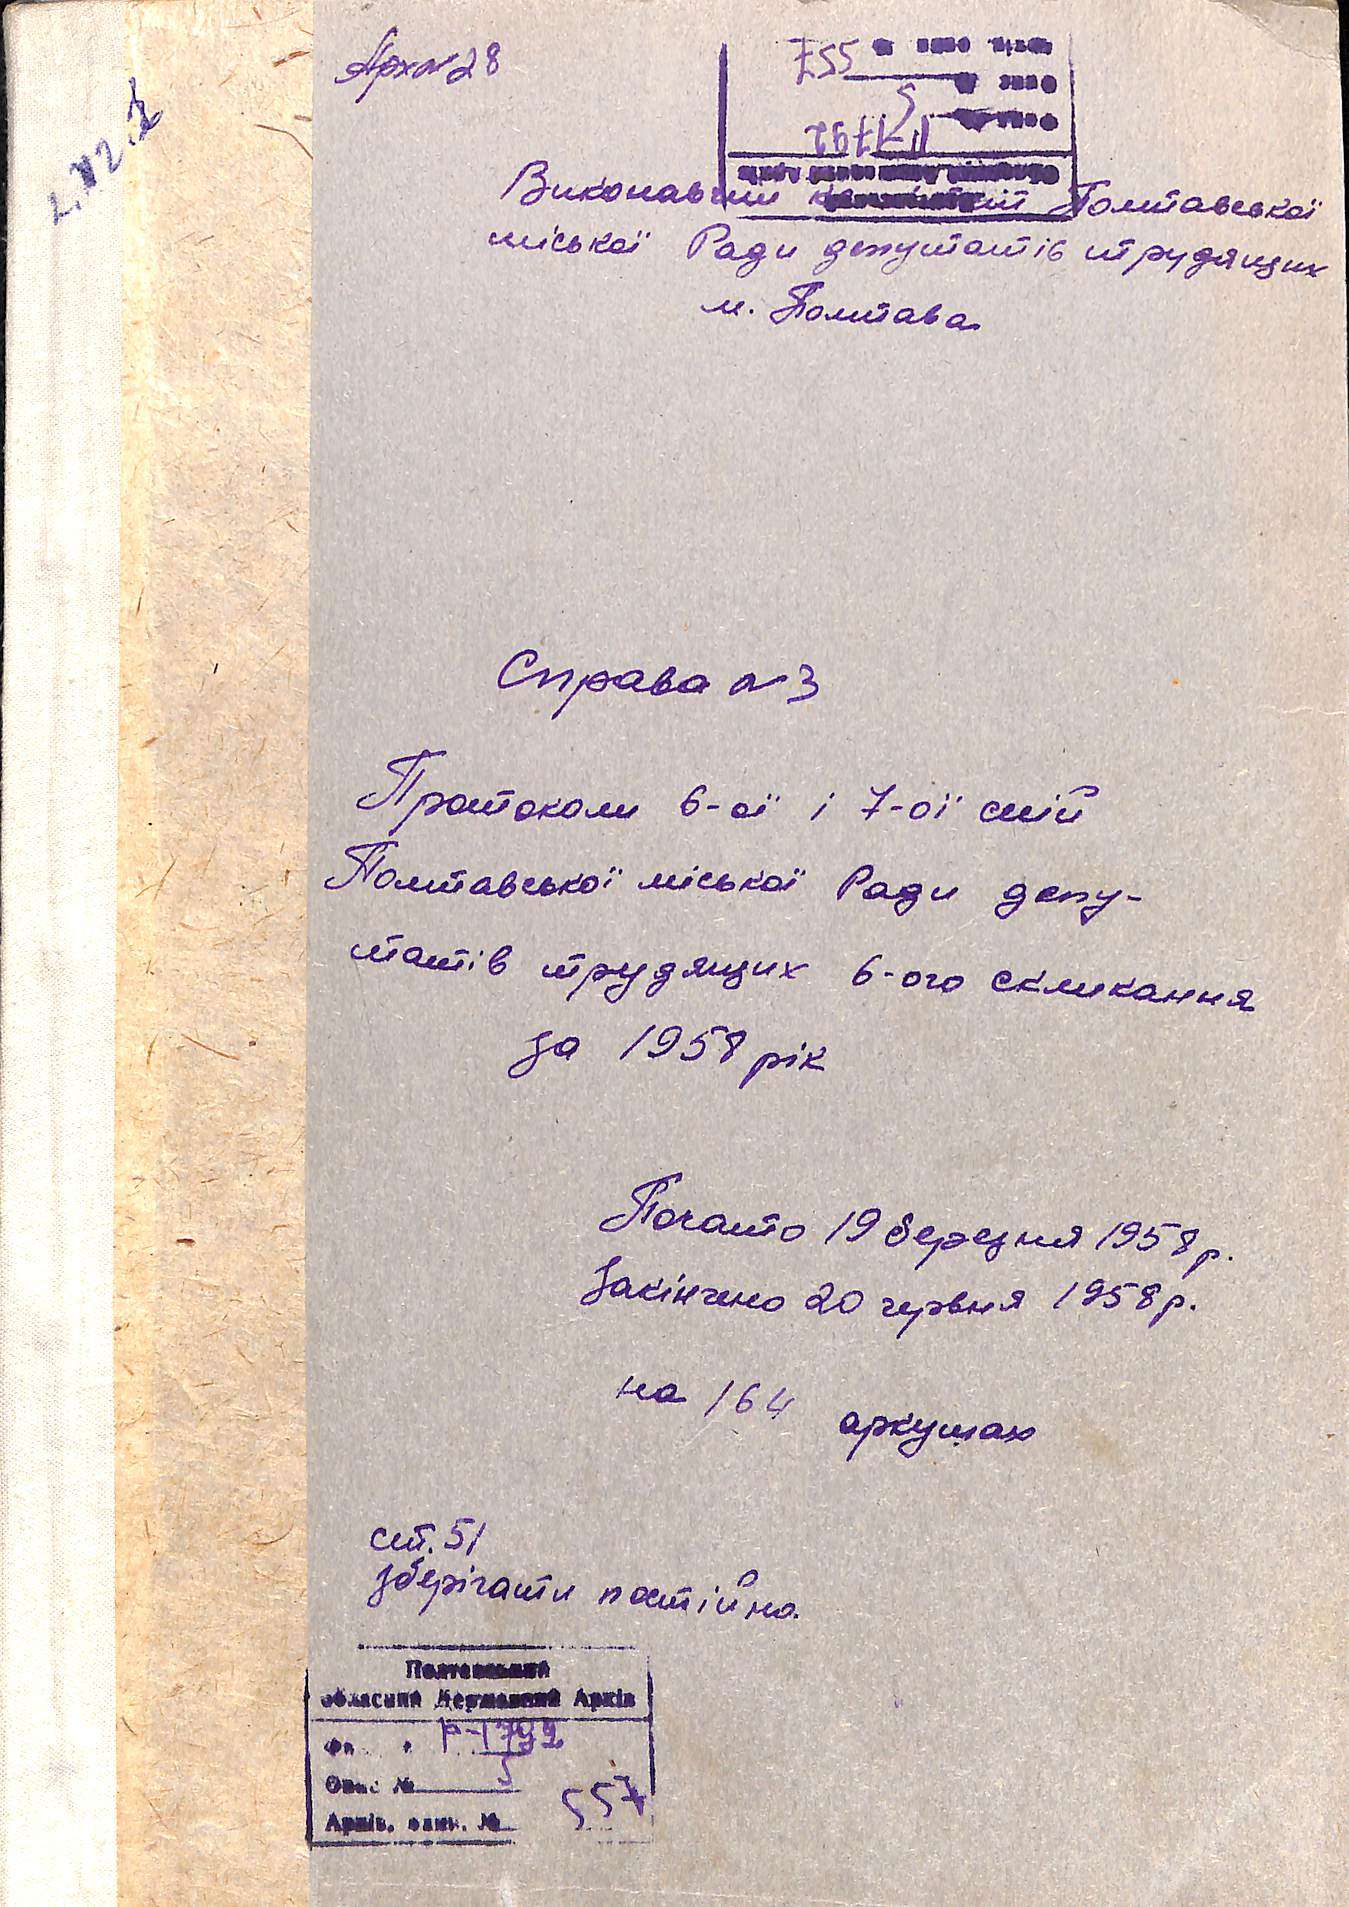 Арх №28
557
1792
Виконавчий комітет Полтавської
міської Ради депутатів трудящих
м. Полтава
Справа №3
Протоколи 6-ої і 7-ої сесій
Полтавської міської Ради депу-
татів трудящих 6-ого скликання
за 1958 рік
Почато 19 березня 1958 р.
Закінчено 20 червня 1958 р.
на 164 аркушах
ст. 51
зберігати постійно.
Полтавський
обласний Державний Архів
Р-1792
Опис № 5
Архів. один. № 557